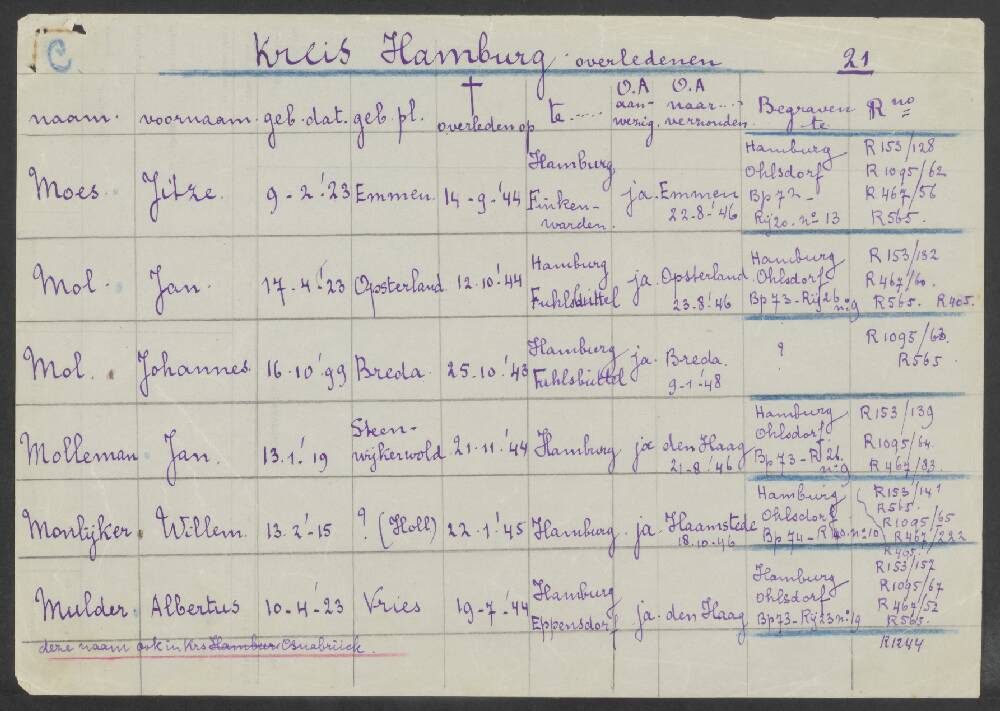 C
Kreis Hamburg overledenen 21
naam. voornaam. geb. dat. geb. pl. † overleden op te ..... O.A aanwezig. O.A naar... verzonden. Begraven te R no
Moes. Jitze. 9-2-'23 Emmen. 14-9-'44 Hamburg, Finkenwarden. ja. Emmen 22-8-'46 Hamburg Ohlsdorf Bp72- Rij 20. no 13 R153/128 R1095/62 R467/56 R565.
Mol. Jan. 17-4-'23 Opsterland 12-10-'44 Hamburg Fuhlsbüttel ja. Opsterland. 23-8-'46 Hamburg Ohlsdorf Bp73-Rij26 no:9 R153/132 R467/60. R565. R405.
Mol. Johannes. 16-10-'99 Breda. 25-10-'43 Hamburg Fuhlsbüttel ja. Breda. 9-1-'48 ? R1095/63. R565
Molleman Jan. 13-1-'19 Steenwijkerwold 21-11-'44 Hamburg ja den Haag 21-8-'46 Hamburg Ohlsdorf. Bp73-R.26. no:9 R153/139 R1095/64. R467/83.
Monlijker. Willem. 13-2-15 ? (Holl) 22-1-'45 Hamburg. ja. Haamstede 18-10-46 Hamburg Ohlsdorf Bp74-R40.no:10 R153/141 R565. R1095/65 R467/222 R405.
Mulder. Albertus 10-4-'23 Vries 19-7-'44 Hamburg Eppensdorf ja. den Haag Hamburg Ohlsdorf Bp73-Rij23no:19 R153/157 R1095/67 R467/52 R565. R1244
deze naam ook in Krs Hambur Osnabrück.